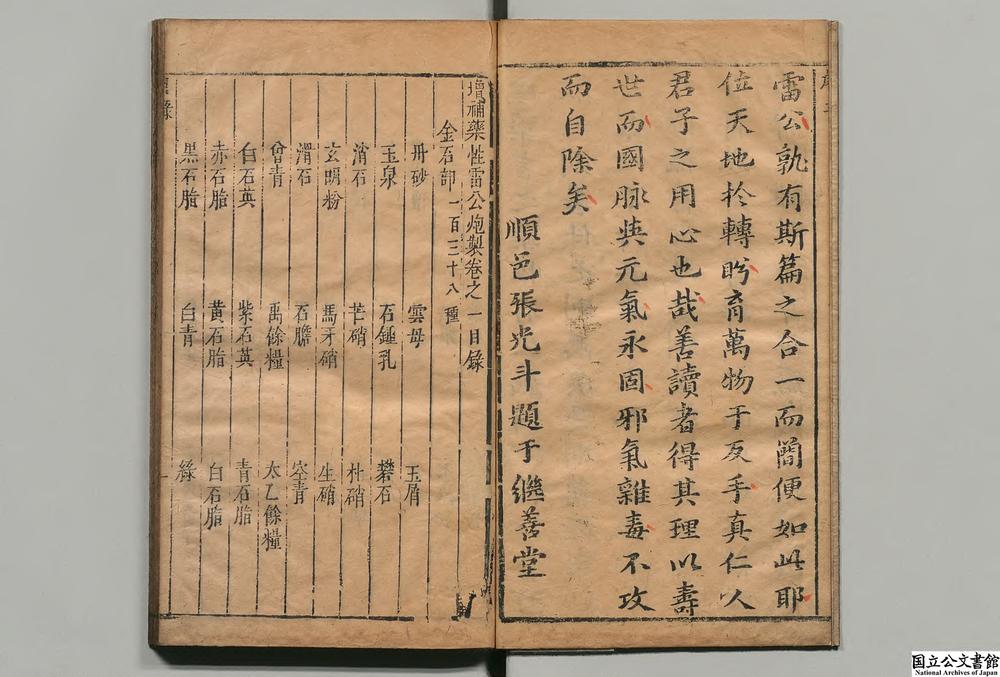 雷公孰有斯篇之合一而簡便如此耶
位天地於轉盻育萬物于反手真仁人
君子之用心也哉善讀者得其理以壽
世而國脉與元氣永固邪氣雜毒不攻
而自除矣
順邑張光斗題于繼善堂
增補藥性雷公炮製卷之一目錄
金石部 一百三十八種
丹砂 雲母 玉屑
玉泉 石鍾乳 礬石
消石 芒硝 朴硝
玄明粉 馬牙硝 生硝
滑石 石膽 空青
曾青 禹餘糧 太乙餘糧
白石英 紫石英 青石脂
赤石脂 黃石脂 白石脂
黑石脂 白青 綠
目錄 一
国立公文書館
National Archives of Japan